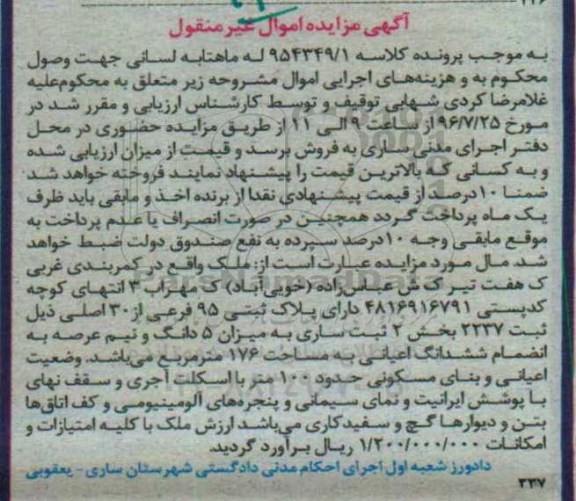 آگهی مزایده اموال غیرمنقول
به موجب پرونده کلاسه ۹۵۴۳۴۹/۱ له ماهتابه لسانی جهت وصول
محکوم به و هزینه‌های اجرایی اموال مشروحه زیر متعلق به محکوم‌علیه
غلامرضا کردی شهابی توقیف و توسط کارشناس ارزیابی و مقرر شد در
مورخ ۹۶/۷/۲۵ از ساعت ۹ الی ۱۱ از طریق مزایده حضوری در محل
دفتر اجرای مدنی ساری به فروش برسد و قیمت از میزان ارزیابی شده
و به کسانی که بالاترین قیمت را پیشنهاد نمایند فروخته خواهد شد
ضمنا ۱۰درصد از قیمت پیشنهادی نقدا از برنده اخذ و مابقی باید ظرف
یک ماه پرداخت گردد همچنین در صورت انصراف یا عدم پرداخت به
موقع مابقی وجه ۱۰درصد سپرده به نفع صندوق دولت ضبط خواهد
شد. مال مورد مزایده عبارت است از: ملک واقع در کمربندی غربی
ک هفت تیر ک ش عباس‌زاده (خویی‌آباد) ک مهراب ۳ انتهای کوچه
کدپستی ۴۸۱۶۹۱۶۷۹۱ دارای پلاک ثبتی ۹۵ فرعی از ۳۰ اصلی ذیل
ثبت ۲۲۳۷ بخش ۲ ثبت ساری به میزان ۵ دانگ و نیم عرصه به
انضمام ششدانگ اعیانی به مساحت ۱۷۶ مترمربع می‌باشد. وضعیت
اعیانی و بنای مسکونی حدود ۱۰۰ متر با اسکلت آجری و سقف نهای
با پوشش ایرانیت و نمای سیمانی و پنجره‌های آلومینیومی و کف اتاق‌ها
بتن و دیوارها گچ و سفیدکاری می‌باشد ارزش ملک با کلیه امتیازات و
امکانات ۱/۲۰۰/۰۰۰/۰۰۰ ریال برآورد گردید.
دادورز شعبه اول اجرای احکام مدنی دادگستری شهرستان ساری - یعقوبی
۳۳۷